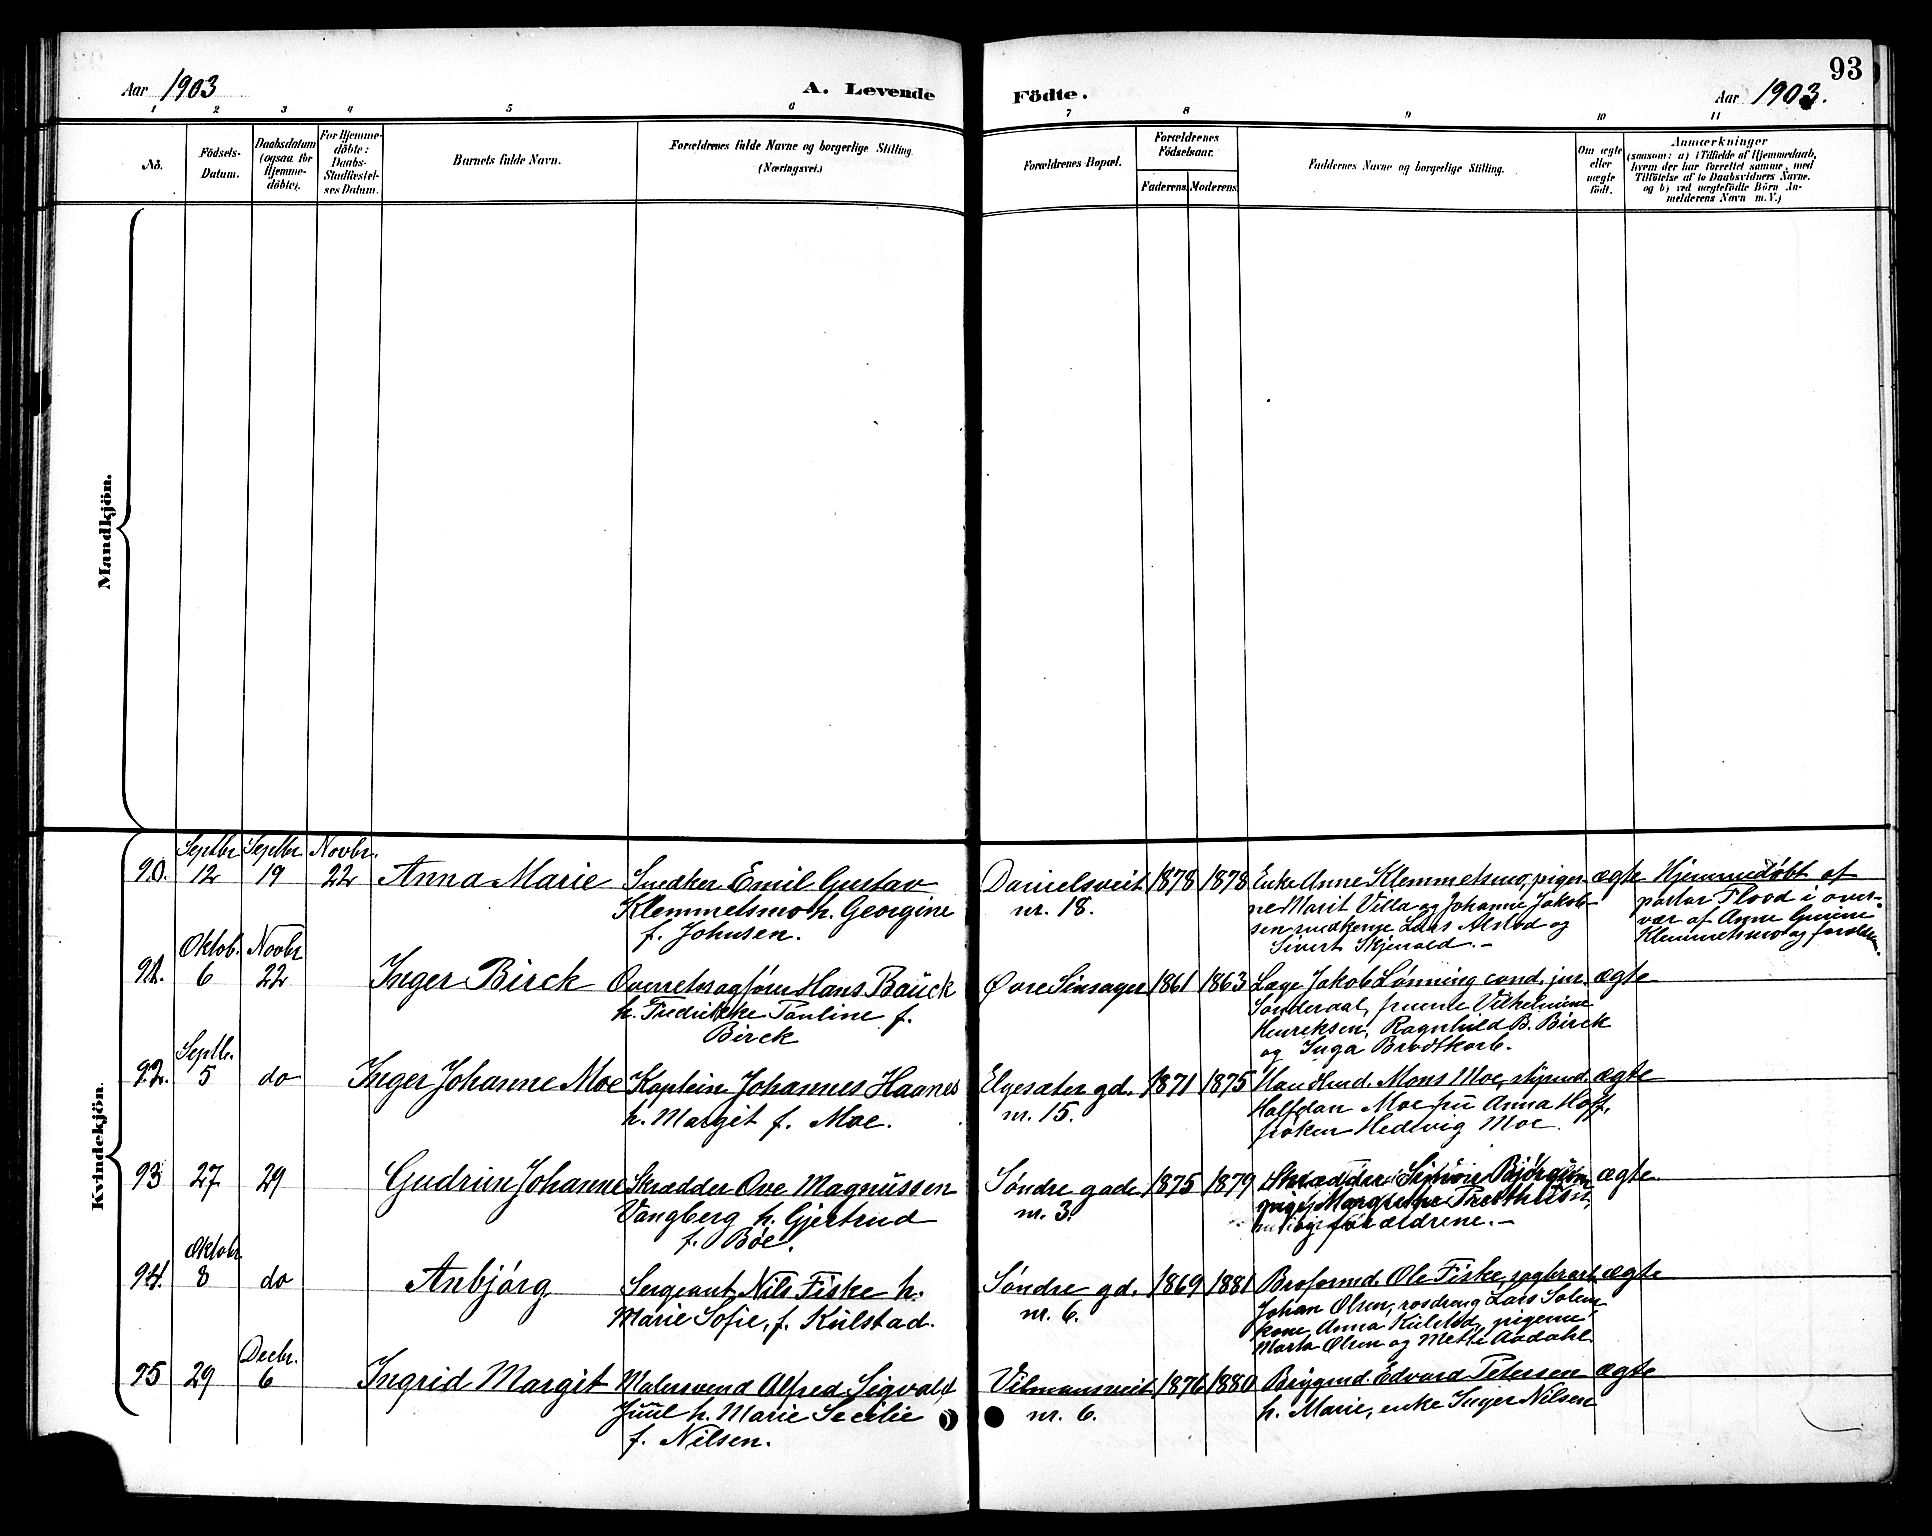 93
Aar 1903
A. Levende
Födte.
Aar 1903.
1 2 3 4 5 6 7 8 9 10 11
No.
Födsels-
Datum.
Daabsdatum
(ogsaa for
Hjemme-
döbte).
For Hjemme-
döbte:
Daabs-
Stadfæstel-
ses Datum.
Barnets fulde Navn.
Forældrenes fulde Navne og borgerlige Stilling
(Næringsvei.)
Forældrenes Bopæl.
Forældrenes
Födselsaar.
Faderens. Moderens.
Faddernes Navne og borgerlige Stilling.
Om ægte
eller
uægte
födt.
Anmærkninger
(saasom: a) i Tilfælde af Hjemmedaab,
hvem der har forrettet samme, med
Tilföielse af to Daabsvidners Navne.
og b) ved uægtefödte Börn An-
melderens Navn m. V.)
Mandkjön.
Kvindekjön.
90. Septbr 12 Septbr 19 Novbr. 22 Anna Marie
Snedker Emil Gustav
Klemmetsmo h. Georgine
f. Johnsen.
Danielsveit
nr. 18.
1878 1878
Enke Anne Klemmetsmo, piger-
ne Marit Villa og Johanne Jakob-
sen snedkersv. Lars Alstad og
Sivert Skjevold.-
ægte
Hjemmedøbt af
pastor Flood i over-
vær af Anne
Klemmetsmo og foreldr.
91. Oktob. 6 Novbr 22 Inger Birck
Overretssagfører Hans Bauck
h. Fredrikke Pauline f.
Birck
Øvre Sinsager
1861 1863
Læge Jakob Lønning cand. jur.
Sonderaal, fruerne Vilhelmine
Henriksen, Ragnhild B. Birck
og Inga Brodtkorb.
ægte
92. Septbr. 5 do Inger Johanne Moe
Kaptein Johannes Haanes
h. Margit f. Moe.
Elgesæter gd.
nr. 15.
1871 1875
Handlsmd. Mons Moe, styrmd.
Halfdan Moe fru Anna Hoff,
frøken Hedevig Moe.
ægte
93 27 29 Gudrun Johanne
Skrædder Ove Magnussen
Vangberg h. Gjertrud
f. Bøe.
Søndre gade
nr. 3.
1875 1879
Skrædder Simon Bjørgum
pige Margrethe
og forældrene.-
ægte
94. Oktobr 8 do Anbjørg
Sergeant Nils Fiske h.
Marie Sofie, f. Kulstad.
Søndre gd.
nr. 6.
1869 1881
Broformd. Ole Fiske, sagbrarb.
Johan Olsen, visdreng Lars Solem
kone Anna Kulstad, pigerne
Marta Olsen og Mette Aadahl
ægte
95 29 Decbr. 6 Ingrid Margit
Malersvend Alfred Sigvald
Juul h. Marie Secilie
f. Nilsen.
Vilmansveit
nr. 6.
1876 1880
Brygmd. Edvard Petersen
h. Marie, enke Inger Nilsen
ægte